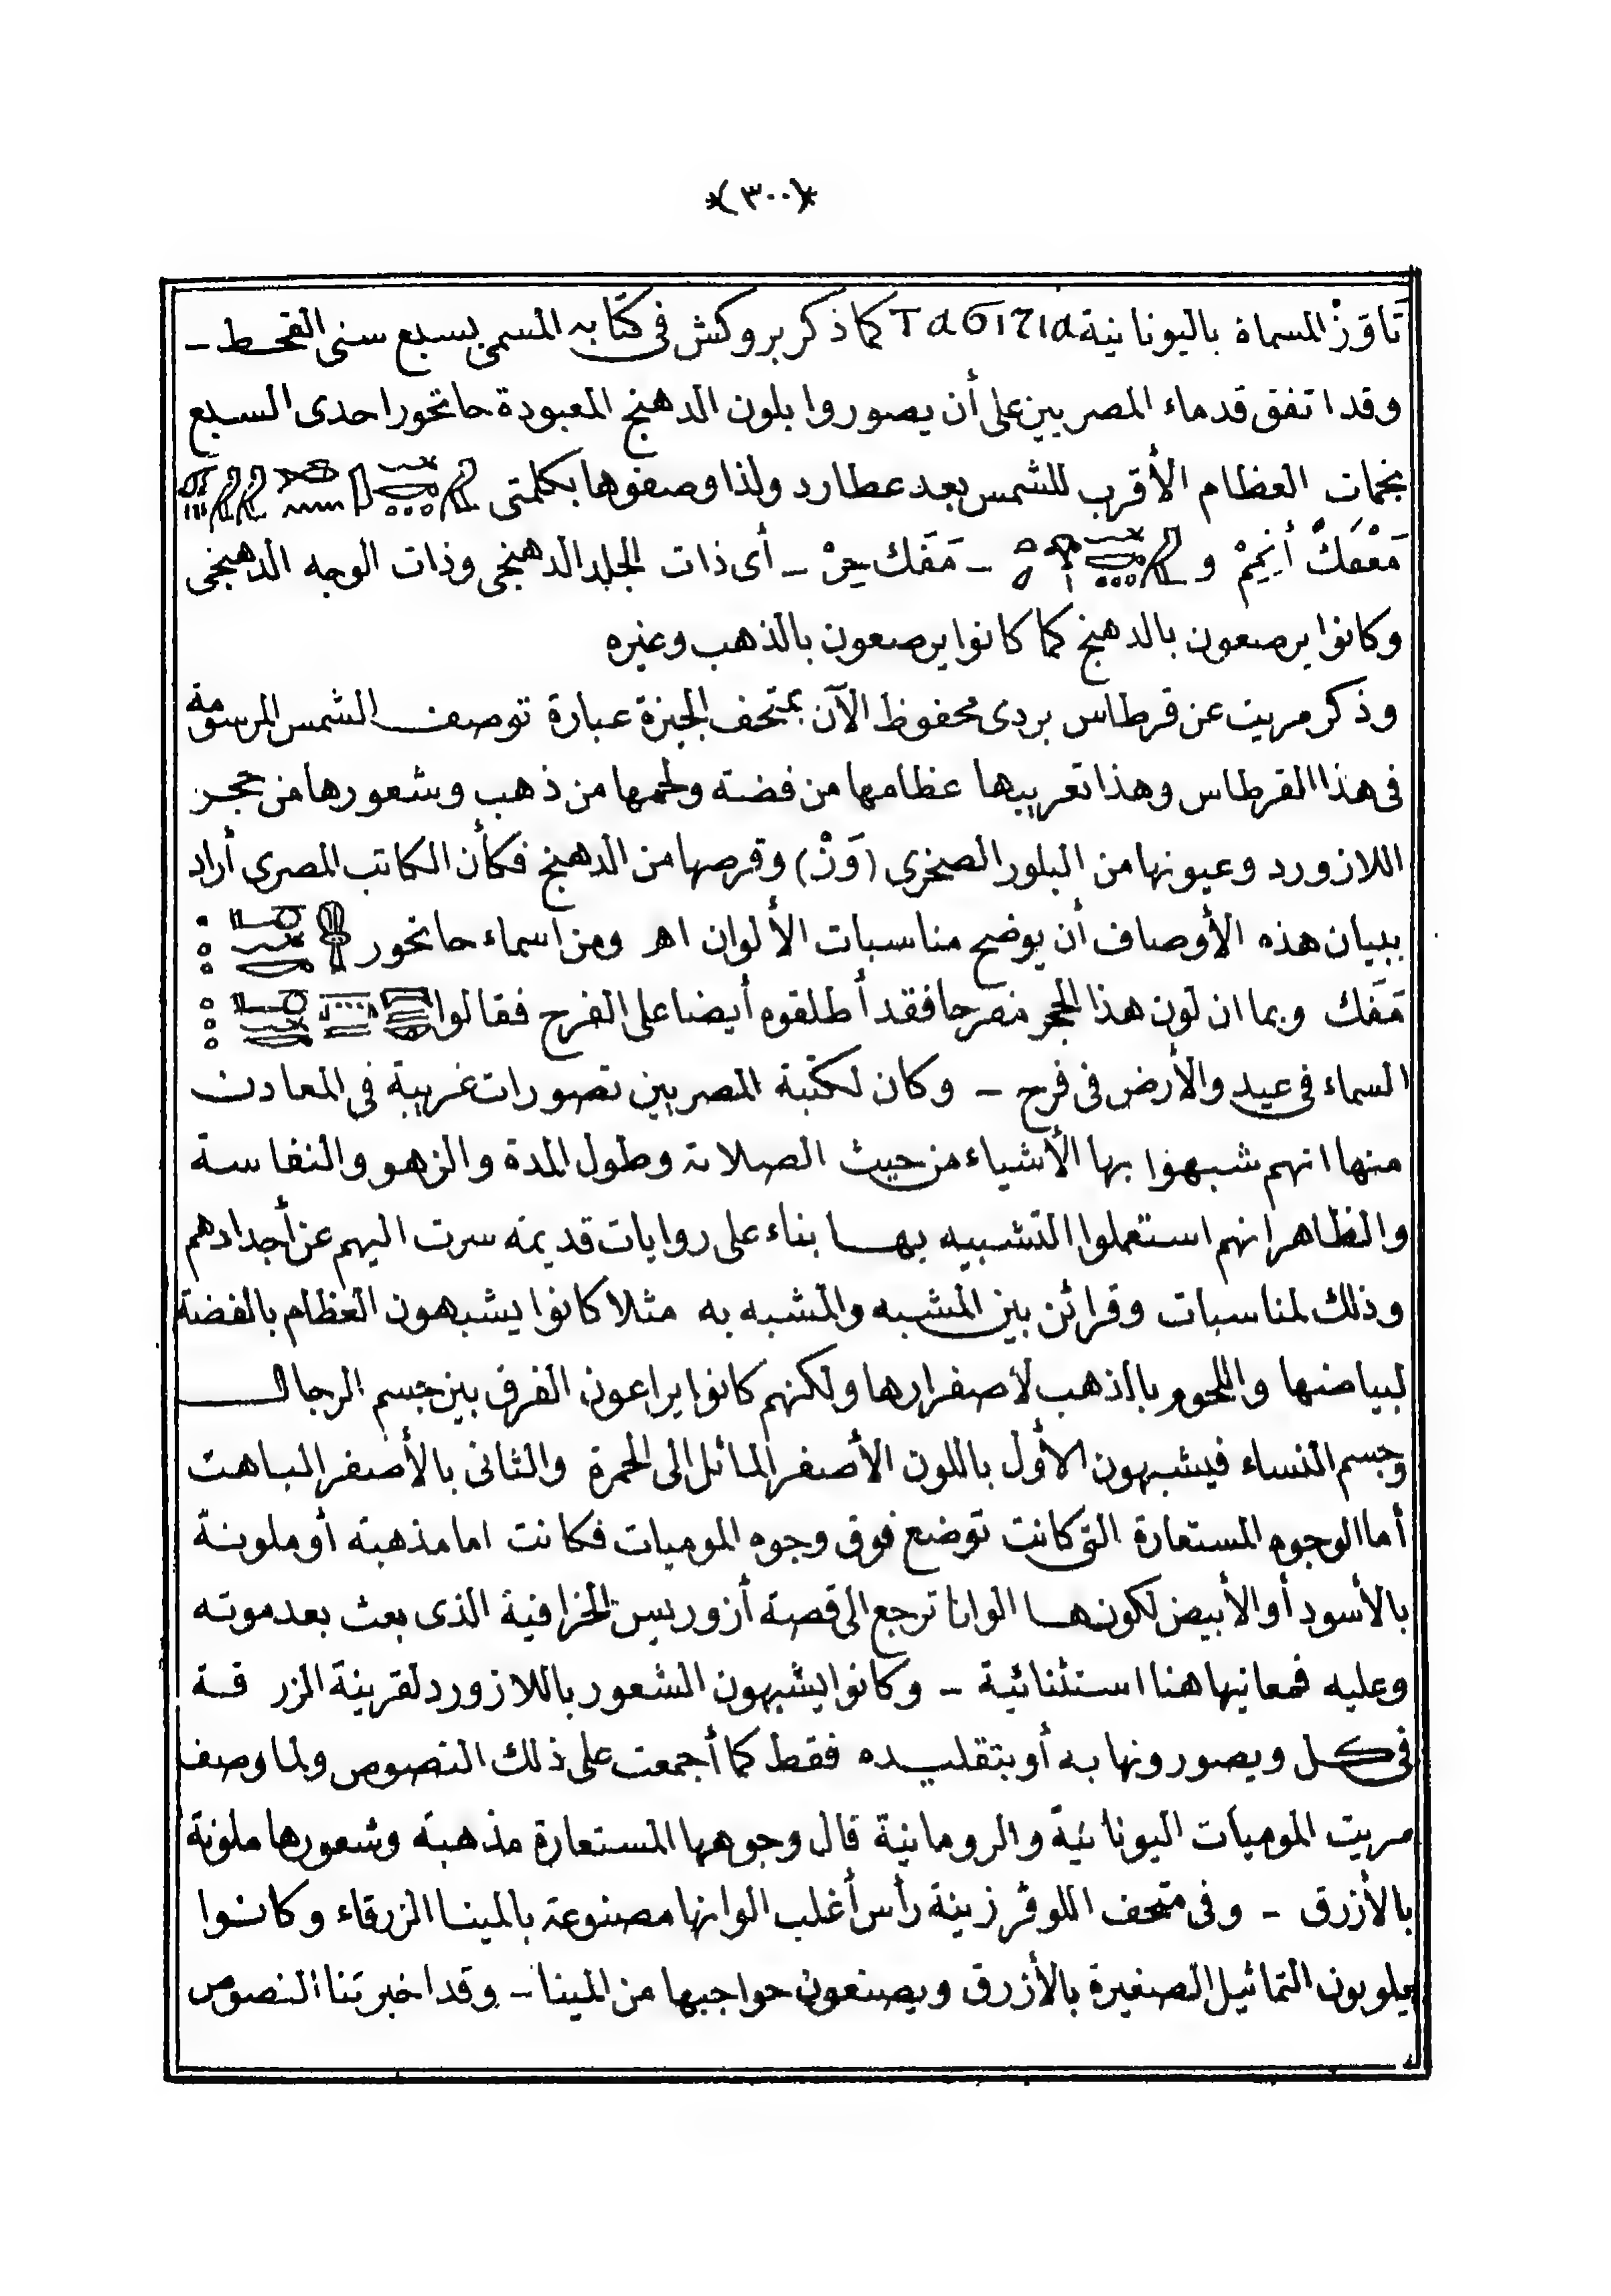 *(٣٠٠)*
تَاوَرْ المسماة باليونانية Taϭιzιa كما ذكر بروكش فى كتابه المسمى بسبع سنى القحط –
وقد اتفق قدماء المصريين على أن يصوروا بلون الدهنج المعبودة حاتحور احدى السبع
نجمات العظام الأقرب للشمس بعد عطارد ولذا وصفوها بكلمتى
مَعْفَكْ أَنِمِمْ و – مَفَك حِرْ – أى ذات الجلد الدهنجى وذات الوجه الدهنجى
وكانوا يرصعون بالدهنج كما كانوا يرصعون بالذهب وغيره
وذكر مريت عن قرطاس بردى محفوظ الآن بمتحف الجيزة عبارة توصف الشمس المرسومة
فى هذا القرطاس وهذا تعريبها عظامها من فضة ولحمها من ذهب وشعورها من حجر
اللازورد وعيونها من البلور الصخرى (وَرْ) وقرصها من الدهنج فكأن الكاتب المصرى أراد
ببيان هذه الأوصاف أن يوضح مناسبات الألوان اهـ ومن اسماء حاتحور
مَفَك وبما ان لون هذا الحجر مفرحا فقد أطلقوه أيضا على الفرح فقالوا
السماء فى عيد والأرض فى فرح – وكان لكتبة المصريين تصورات غريبة فى المعادن
منها انهم شبهوا بها الأشياء من حيث الصلابة وطول المدة والزهو والنفاسة
والظاهر انهم استعملوا التشبيه بها بناء على روايات قديمة سرت اليهم عن أجدادهم
وذلك لمناسبات وقرائن بين المشبه والمشبه به مثلا كانوا يشبهون العظام بالفضة
لبياضها واللحوم بالذهب لاصفرارها ولكنهم كانوا يراعون الفرق بين جسم الرجال
وجسم النساء فيشبهون الأول باللون الأصفر المائل الى الحمرة والثانى بالأصفر الباهت
أما الوجوه المستعارة التى كانت توضع فوق وجوه الموميات فكانت اما مذهبة أو ملونة
بالأسود أو الأبيض لكونها الوانا ترجع الى قصة أزوريس الخرافية الذى بعث بعد موته
وعليه فمعانيها هنا استثنائية – وكانوا يشبهون الشعور باللازورد لقرينة الزرقة
فى كل ويصورونها به أو بتقليده فقط كما أجمعت على ذلك النصوص ولما وصف
مريت الموميات اليونانية والرومانية قال وجوهها المستعارة مذهبة وشعورها ملونة
بالأزرق – وفى متحف اللوڤر زينة رأس أغلب الوانها مصنوعة بالمينا الزرقاء وكانوا
يلونون التماثيل الصغيرة بالأزرق ويصنعون حواجبها من المينا – وقد اخبرتنا النصوص